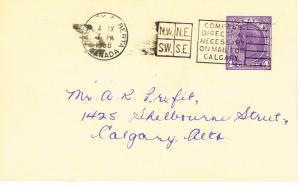 4 IX
PM
CANADA
N.W. N.E.
S.W. S.E.
COMP
DIREC
NECES
ON MAIL FO
CALGARY
Mr A R Profit,
1425 Shelbourne Street,
Calgary, Alta.